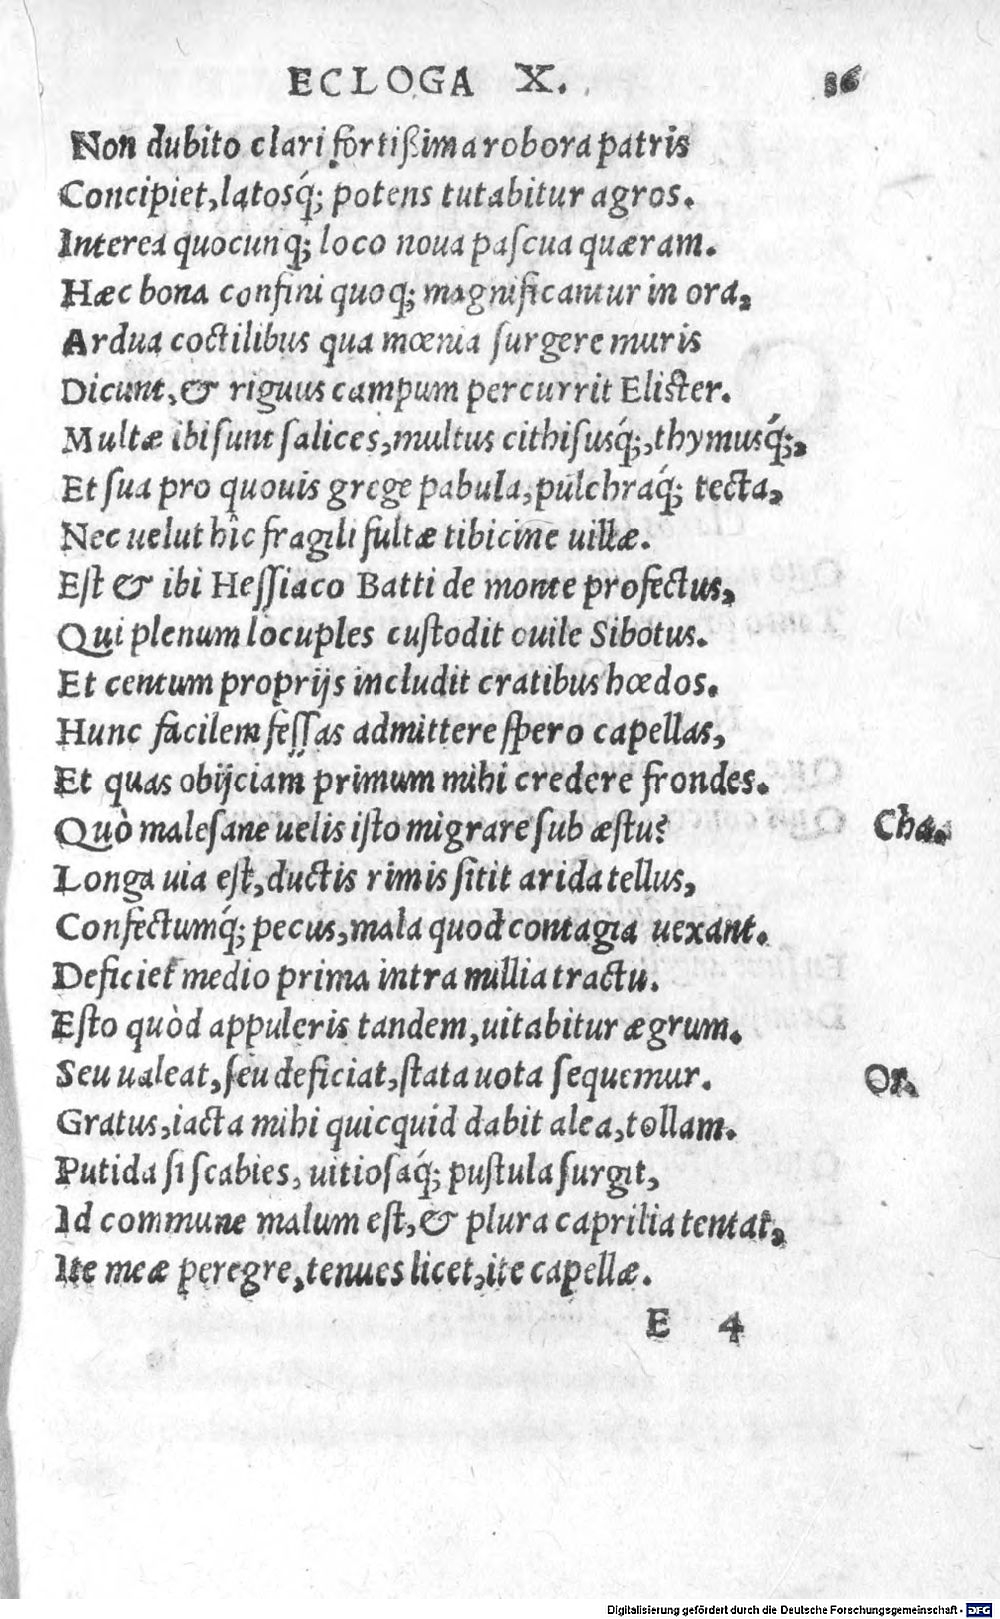 ECLOGA X. 36
Non dubito clari fortißima robora patris
Concipiet, latosq́; potens tutabitur agros.
Interea quocunq; loco noua paſcua quæram.
Hæc bona confini quoq; magnificantur in ora,
Ardua coctilibus qua mœnia ſurgere muris
Dicunt, & riguus campum percurrit Eliſter.
Multæ ibi ſunt ſalices, multus cithiſusq́;, thymusq́;,
Et ſua pro quouis grege pabula, pulchraq́; tecta,
Nec uelut hîc fragili fultæ tibicine uillæ.
Eſt & ibi Heſſiaco Batti de monte profectus,
Qui plenum locuples cuſtodit ouile Sibotus.
Et centum proprijs includit cratibus hœdos.
Hunc facilem feſſas admittere ſpero capellas,
Et quas obijciam primum mihi credere frondes.
Quò maleſane uelis iſto migrare ſub æſtu? Cha.
Longa uia eſt, ductis rimis ſitit arida tellus,
Confectumq́; pecus, mala quod contagia uexant.
Deficiet medio prima intra millia tractu.
Eſto quòd appuleris tandem, uitabitur ægrum.
Seu ualeat, ſeu deficiat, ſtata uota ſequemur. Or.
Gratus, iacta mihi quicquid dabit alea, tollam.
Putida ſi ſcabies, uitioſaq́; puſtula ſurgit,
Id commune malum eſt, & plura caprilia tentat,
Ite meæ peregre, tenues licet, ite capellæ.
E 4
Digitalisierung gefördert durch die Deutsche Forschungsgemeinschaft - DFG